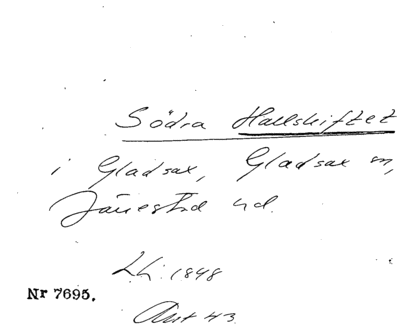 Södra Hallskiftet
i Gladsax, Gladsax sn,
Järrestad hd.
Lh. 1848
Nr 7695.
Akt 43